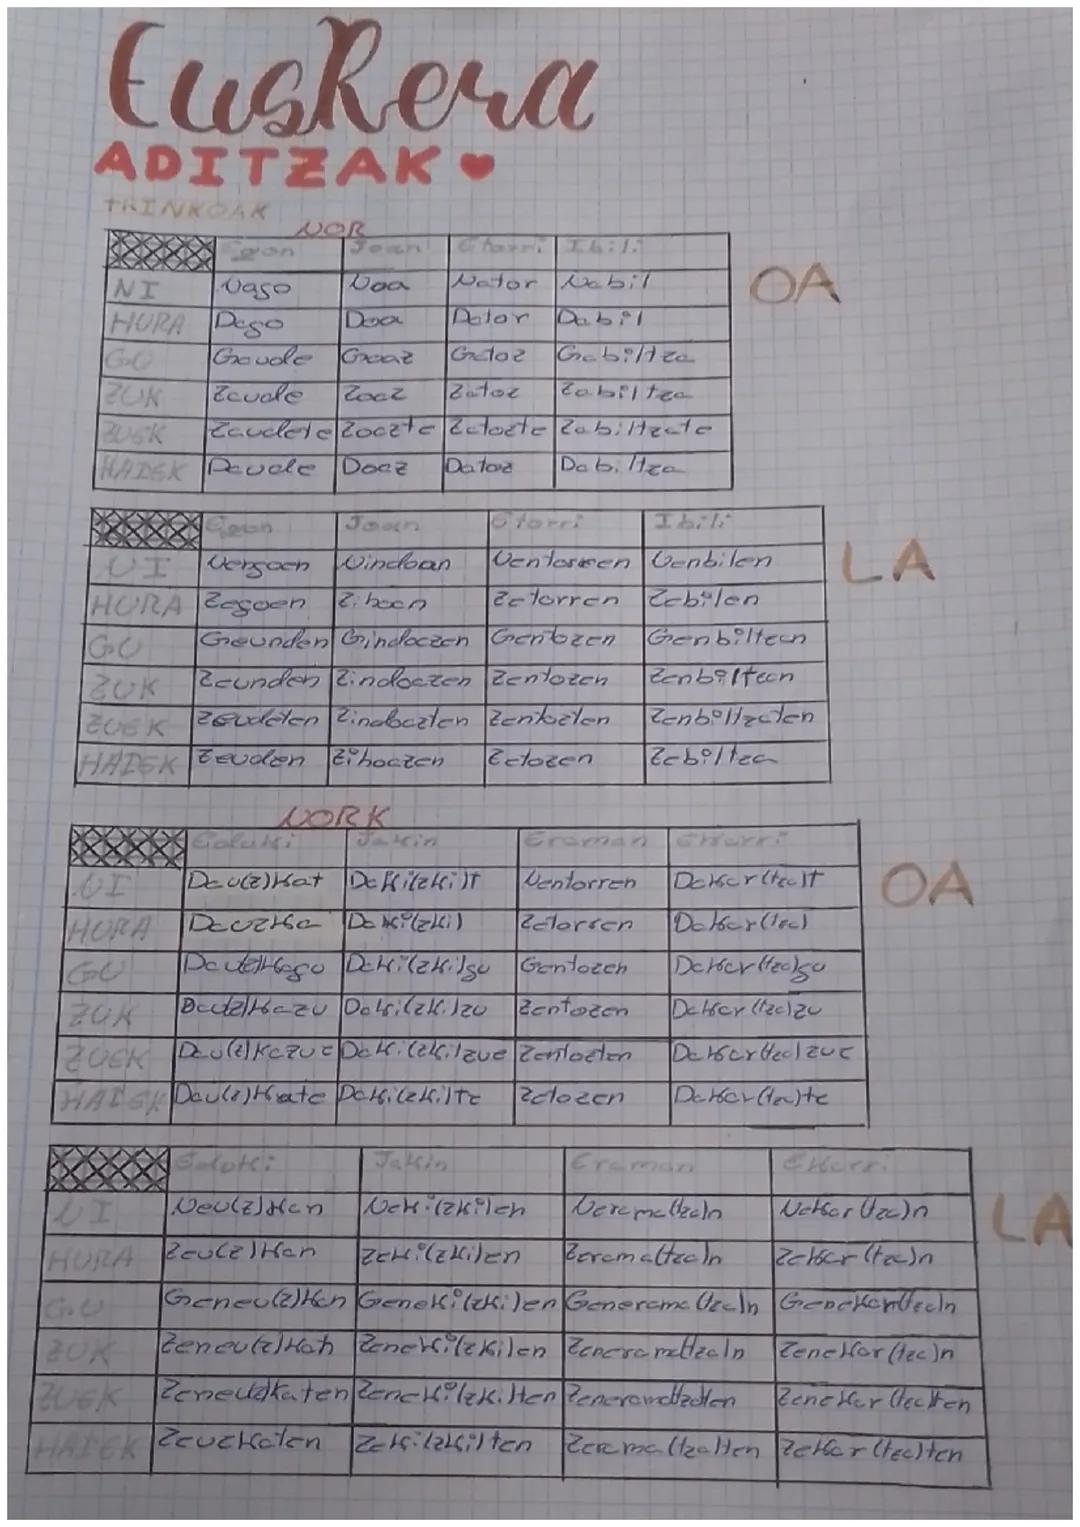 Euskera
ADITZAK
TRINKOAK
NOR
Egon Joan Etorri Ibili
OA
NI Nago Noa Nator Nabil
HURA Dago Doa Dator Dabil
GU Gaude Goaz Gatoz Gabiltza
ZUK Zaude Zoaz Zatoz Zabiltza
ZUEK Zaudete Zoazte Zatozte Zabiltzate
HAIEK Daude Doaz Datoz Dabiltza
Egon Joan Etorri Ibili
LA
NI Nengoen Nindoan Nentorren Nenbilen
HURA Zegoen Zihoan Zetorren Zebilen
GU Geunden Gindoazen Gentozen Genbiltzan
ZUK Zeunden Zindoazen Zentozen Zenbiltzan
ZUEK Zeudeten Zindoazten Zentozten Zenbiltzaten
HAIEK Zeuden Zihoazen Zetozen Zebiltza
NORK
Eduki Jakin Eraman Ekarri
OA
NI Dau(z)kat Daki(zki)t Nentorren Dakar(tza)t
HURA Dauzka Daki(zki) Zetorren Dakar(tza)
GU Dau(z)kagu Daki(zki)gu Gentozen Dakar(tza)gu
ZUK Dau(z)kazu Daki(zki)zu Zentozen Dakar(tza)zu
ZUEK Dau(z)kazue Daki(zki)zue Zentozten Dakar(tza)zue
HAIEK Dau(z)kate Daki(zki)te Zetozen Dakar(tza)te
Eduki Jakin Eraman Ekarri
LA
NI Neu(z)kan Neki(zki)en Nerama(tza)n Nekar(tza)n
HURA Zeu(z)kan Zeki(zki)en Zerama(tza)n Zekar(tza)n
GU Geneu(z)kan Geneki(zki)en Generama(tza)n Genekar(tza)n
ZUK Zeneu(z)kan Zeneki(zki)en Zenerama(tza)n Zenekar(tza)n
ZUEK Zeneu(z)katen Zeneki(zki)ten Zenerama(tza)ten Zenekar(tza)ten
HAIEK Zeuzkaten Zeki(zki)ten Zerama(tza)ten Zekar(tza)ten